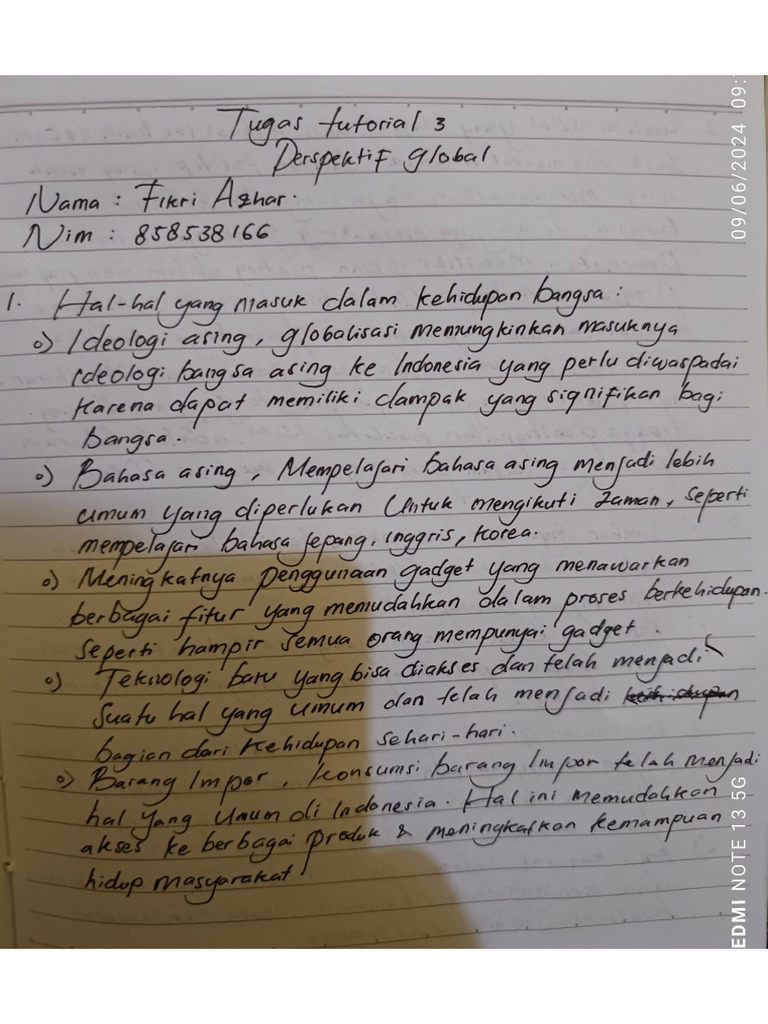 Tugas tutorial 3
Perspektif global
Nama : Fikri Azhar.
Nim : 858538166
1. Hal-hal yang masuk dalam kehidupan bangsa :
o) Ideologi asing, globalisasi memungkinkan masuknya
ideologi bangsa asing ke Indonesia yang perlu diwaspadai
karena dapat memiliki dampak yang signifikan bagi
bangsa.
o) Bahasa asing, Mempelajari bahasa asing menjadi lebih
umum yang diperlukan Untuk mengikuti zaman, seperti
mempelajari bahasa jepang, inggris, korea.
o) Meningkatnya penggunaan gadget yang menawarkan
berbagai fitur yang memudahkan dalam proses berkehidupan.
seperti hampir semua orang mempunyai gadget.
o) Teknologi baru yang bisa diakses dan telah menjadi
suatu hal yang umum dan telah menjadi
bagian dari kehidupan sehari-hari.
o) Barang Impor, konsumsi barang Impor telah menjadi
hal yang umum di Indonesia. Hal ini memudahkan
akses ke berbagai produk & meningkatkan kemampuan
hidup masyarakat
09/06/2024 09:
EDMI NOTE 13 5G